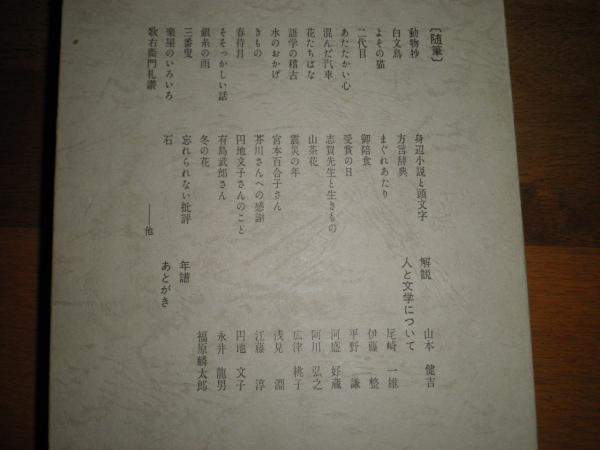 〔随筆〕
動物抄
白文鳥
よその猫
二代目
あたたかい心
混んだ汽車
花たちばな
語学の稽古
水のおかげ
きもの
春待月
そそっかしい話
銀糸の雨
三番叟
楽屋のいろいろ
歌右衛門礼讃
身辺小説と頭文字
方言辞典
まぐれあたり
御陪食
受賞の日
志賀先生と生きもの
山茶花
震災の年
宮本百合子さん
芥川さんへの感謝
円地文子さんのこと
有島武郎さん
冬の花
忘れられない批評
石
――他
解説 山本 健吉
人と文学について 尾崎 一雄
伊藤 整
平野 謙
河盛 好蔵
阿川 弘之
広津 桃子
浅見 淵
江藤 淳
円地 文子
永井 龍男
福原 麟太郎
年譜
あとがき